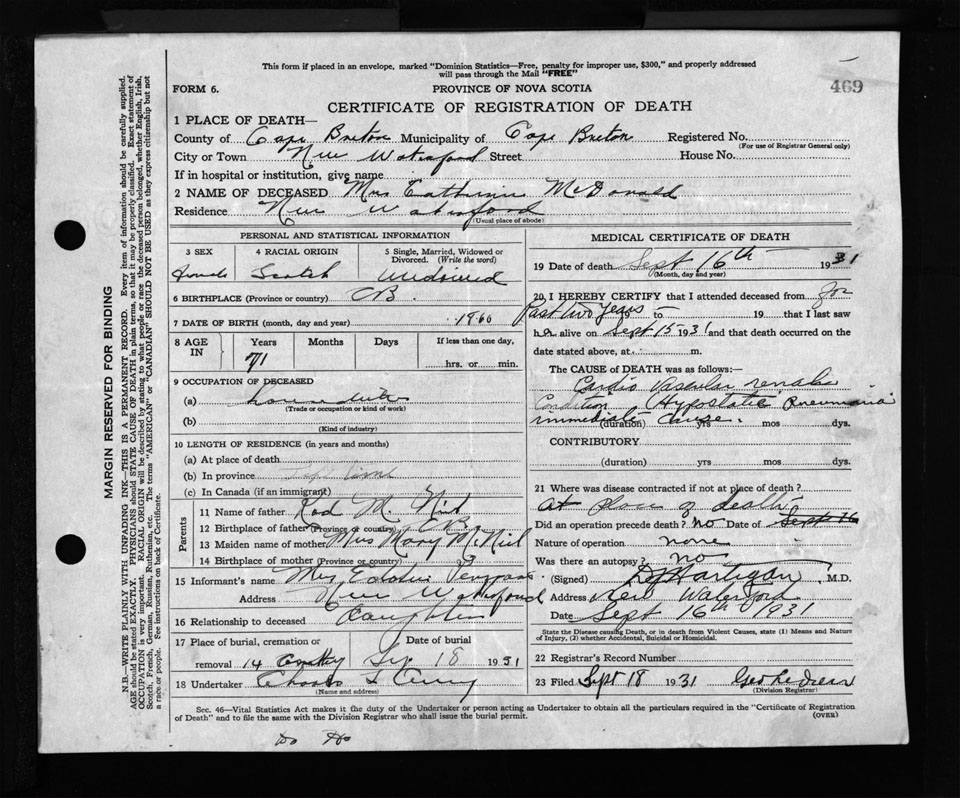 This form if placed in an envelope, marked "Dominion Statistics—Free, penalty for improper use, $300," and properly addressed
will pass through the Mail "FREE"
469
FORM 6.
PROVINCE OF NOVA SCOTIA
CERTIFICATE OF REGISTRATION OF DEATH
1 PLACE OF DEATH—
County of Cape Breton Municipality of Cape Breton Registered No.
(For use of Registrar General only)
City or Town New Waterford Street House No.
If in hospital or institution, give name
2 NAME OF DECEASED Mrs Catherine McDonald
Residence New Waterford
(Usual place of abode)
PERSONAL AND STATISTICAL INFORMATION
3 SEX 4 RACIAL ORIGIN 5 Single, Married, Widowed or Divorced. (Write the word)
Female Scotch Widowed
6 BIRTHPLACE (Province or country) CB.
7 DATE OF BIRTH (month, day and year) 1860
8 AGE IN Years Months Days If less than one day,
71 hrs. or min.
9 OCCUPATION OF DECEASED
(a)
(Trade or occupation or kind of work)
(b)
(Kind of industry)
10 LENGTH OF RESIDENCE (in years and months)
(a) At place of death
(b) In province Life time
(c) In Canada (if an immigrant)
Parents
11 Name of father Rod Mc
12 Birthplace of father (Province or country) CB.
13 Maiden name of mother Mrs Mary McNeil
14 Birthplace of mother (Province or country)
15 Informant's name Mrs
Address New Waterford
16 Relationship to deceased Daughter
17 Place of burial, cremation or removal Date of burial
14 Sep 18 1931
18 Undertaker
(Name and address)
MEDICAL CERTIFICATE OF DEATH
19 Date of death Sept 16th 1931
(Month, day and year)
20 I HEREBY CERTIFY that I attended deceased from for
Past two years to 19 that I last saw
h alive on Sept 15 1931 and that death occurred on
date stated above, at m.
The CAUSE of DEATH was as follows:—
Cardio Vascular renal
Condition Hypostatic Pneumonia
immediate cause.
(duration) yrs mos dys.
CONTRIBUTORY
(duration) yrs mos dys.
21 Where was disease contracted if not at place of death?
At place of death
Did an operation precede death? no Date of Sept 16
Nature of operation none
Was there an autopsy? no
(Signed) Hartigan M.D.
Address New Waterford
Date Sept 16th 1931
State the Disease causing Death, or in death from Violent Causes, state (1) Means and Nature of Injury, (2) whether Accidental, Suicidal or Homicidal.
22 Registrar's Record Number
23 Filed Sept 18 1931 Geo
(Division Registrar)
Sec. 46—Vital Statistics Act makes it the duty of the Undertaker or person acting as Undertaker to obtain all the particulars required in the "Certificate of Registration
of Death" and to file the same with the Division Registrar who shall issue the burial permit.
(OVER)
MARGIN RESERVED FOR BINDING
N.B.—WRITE PLAINLY WITH UNFADING INK—THIS IS A PERMANENT RECORD. Every item of information should be carefully supplied.
AGE should be stated EXACTLY. PHYSICIANS should STATE CAUSE OF DEATH in plain terms, so that it may be properly classified. Exact statement of
OCCUPATION is very important. RACIAL ORIGIN will be described by stating to what people or race the deceased person belonged, whether English, Irish,
Scotch, French, German, Russian, Ruthenian, etc. The terms "AMERICAN" or "CANADIAN" SHOULD NOT BE USED as they express citizenship but not
a race or people. See instructions on back of Certificate.